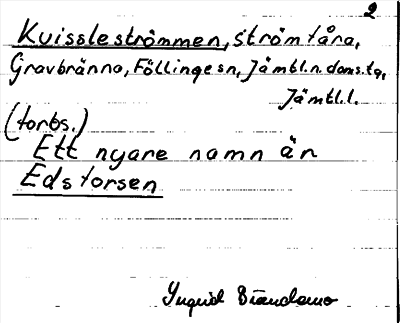 2
Kuissleströmmen, strömfåra,
Gravbränna, Föllinge sn, Jämtl. n. doms. tg,
Jämtl. l.
(torbs.)
Ett nyare namn än
Edstorsen
Ingrid